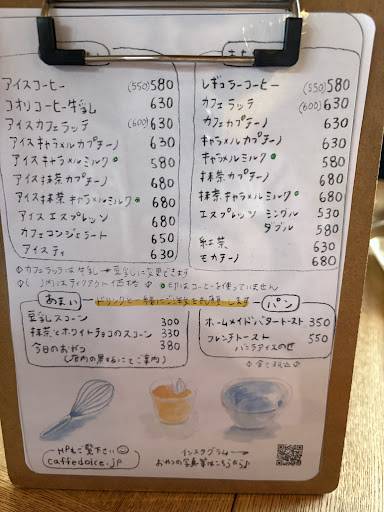 アイスコーヒー (550) 580
コオリコーヒー牛乳 630
アイスカフェラッテ (600) 630
アイスキャラメルカプチーノ 630
アイスキャラメルミルク 580
アイス抹茶カプチーノ 680
アイス抹茶キャラメルミルク 680
アイスエスプレッソ 680
カフェコンジェラート 650
アイスティ 630
レギュラーコーヒー (550) 580
カフェラッテ (600) 630
カフェカプチーノ 630
キャラメルカプチーノ 630
キャラメルミルク 580
抹茶カプチーノ 680
抹茶キャラメルミルク 680
エスプレッソ シングル 530
ダブル 580
紅茶 630
モカチーノ 680
カフェラッテは牛乳→豆乳に変更できます
( )内はテイクアウト価格
印はコーヒーを使っていません
あまい
ドリンクと一緒にご注文をお願いします
パン
豆乳スコーン 300
抹茶とホワイトチョコのスコーン 330
今日のおやつ 380
(店内の黒板にてご案内)
ホームメイドバタートースト 350
フレンチトースト 550
バニラアイスのせ
全て税込
HPもご覧下さい
caffedolce.jp
インスタグラム
おやつの写真等はこちら♪